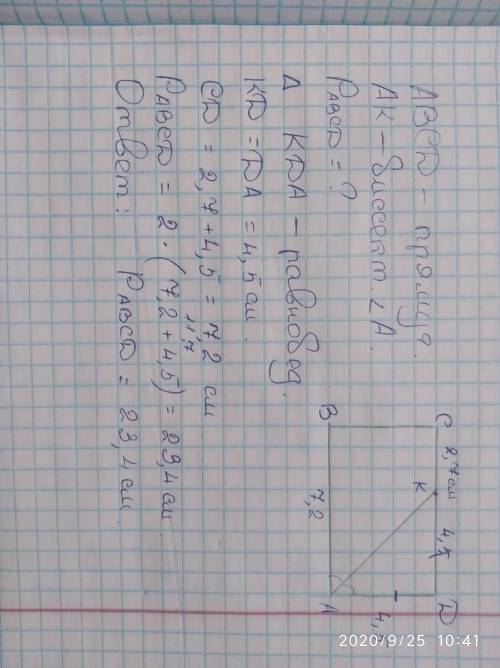 ABCD – прямоуг.
AK – биссект. ∠A.
PABCD = ?
Δ KDA – равнобед.
KD = DA = 4,5 см.
CD = 2,7 + 4,5 = 7,2 см
11,7
PABCD = 2 · (7,2 + 4,5) = 23,4 см
Ответ: PABCD = 23,4 см.
C 2,7 см K 4,5 D
4,5
B 7,2 A
2020/9/25 10:41